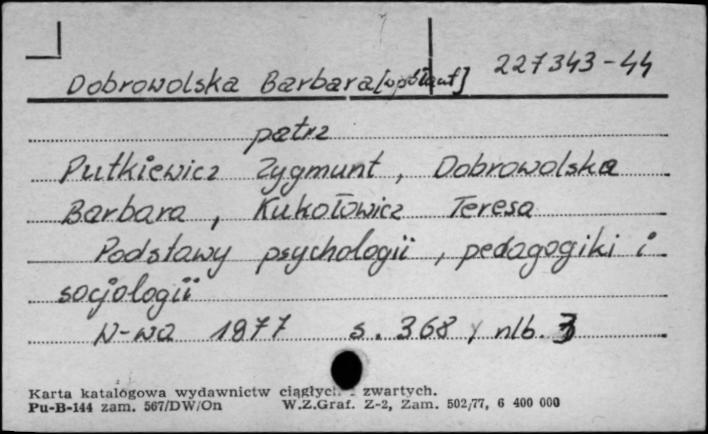 Dobrowolska Barbara [współaut] 227343-44
patrz
Putkiewicz Zygmunt, Dobrowolska
Barbara, Kukołowicz Teresa
Podstawy psychologii, pedagogiki i
socjologii
W-wa 1977 s. 368, nlb. 3
Karta katalogowa wydawnictw ciągłych i zwartych.
Pu-B-144 zam. 567/DW/On W.Z.Graf. Z-2, Zam. 502/77, 6 400 000